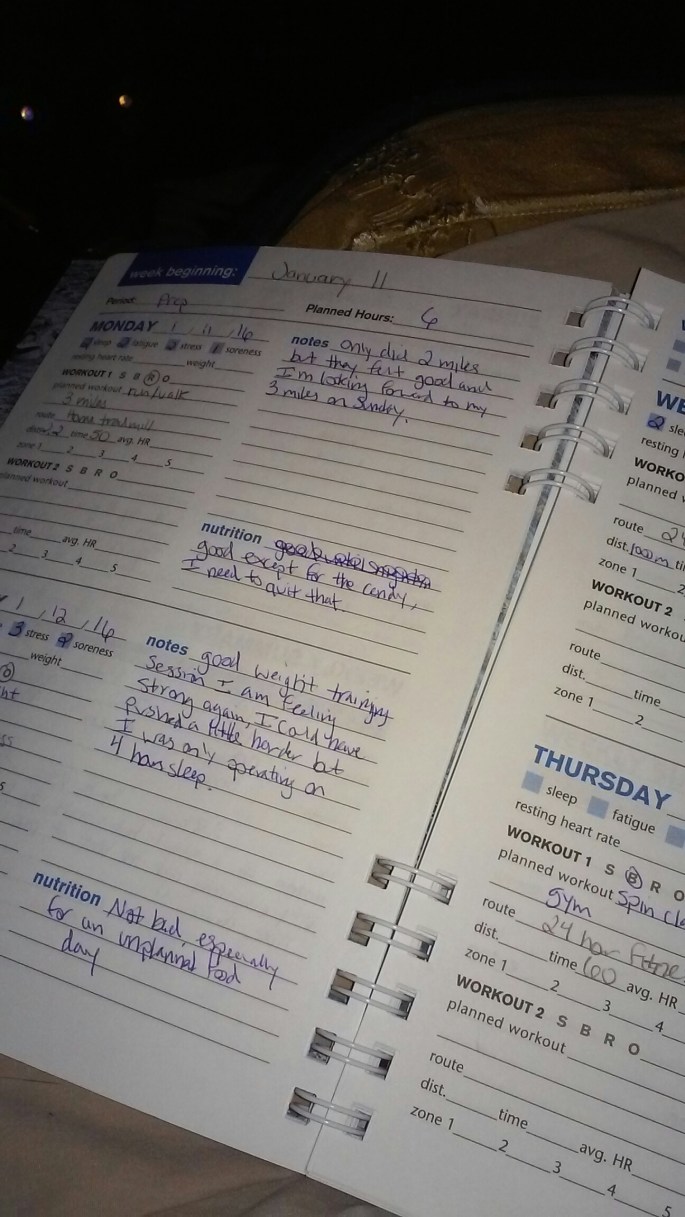 week beginning: January 11
Period: Prep
Planned Hours: 6
MONDAY 1, 11, 16
sleep fatigue stress soreness
resting heart rate weight
WORKOUT 1 S B R O
planned workout run/walk
3 miles
route Home treadmill
dist. 2 time 50 avg. HR
zone 1 2 3 4 5
WORKOUT 2 S B R O
planned workout
time avg. HR
2 3 4 5
notes only did 2 miles
but they felt good and
I'm looking forward to my
3 miles on Sunday.
nutrition
good except for the candy,
I need to quit that
1, 12, 16
3 stress 2 soreness
weight
O
notes good weight training
Session I am feeling
strong again, I could have
Pushed a little harder but
I was only operating on
4 hours sleep.
nutrition Not bad, especially
for an unplanned food
day
WE
2 slee
resting
WORKO
planned w
route 24
dist. 100m ti
zone 1 2
WORKOUT 2
planned workou
route
dist. time
zone 1 2
THURSDAY
sleep fatigue
resting heart rate
WORKOUT 1 S B R O
planned workout Spin cla
gym
route 24 hour fitne
dist. time 60 avg. HR
zone 1 2 3 4
WORKOUT 2 S B R O
planned workout
route
dist. time avg. HR
zone 1 2 3 4 5